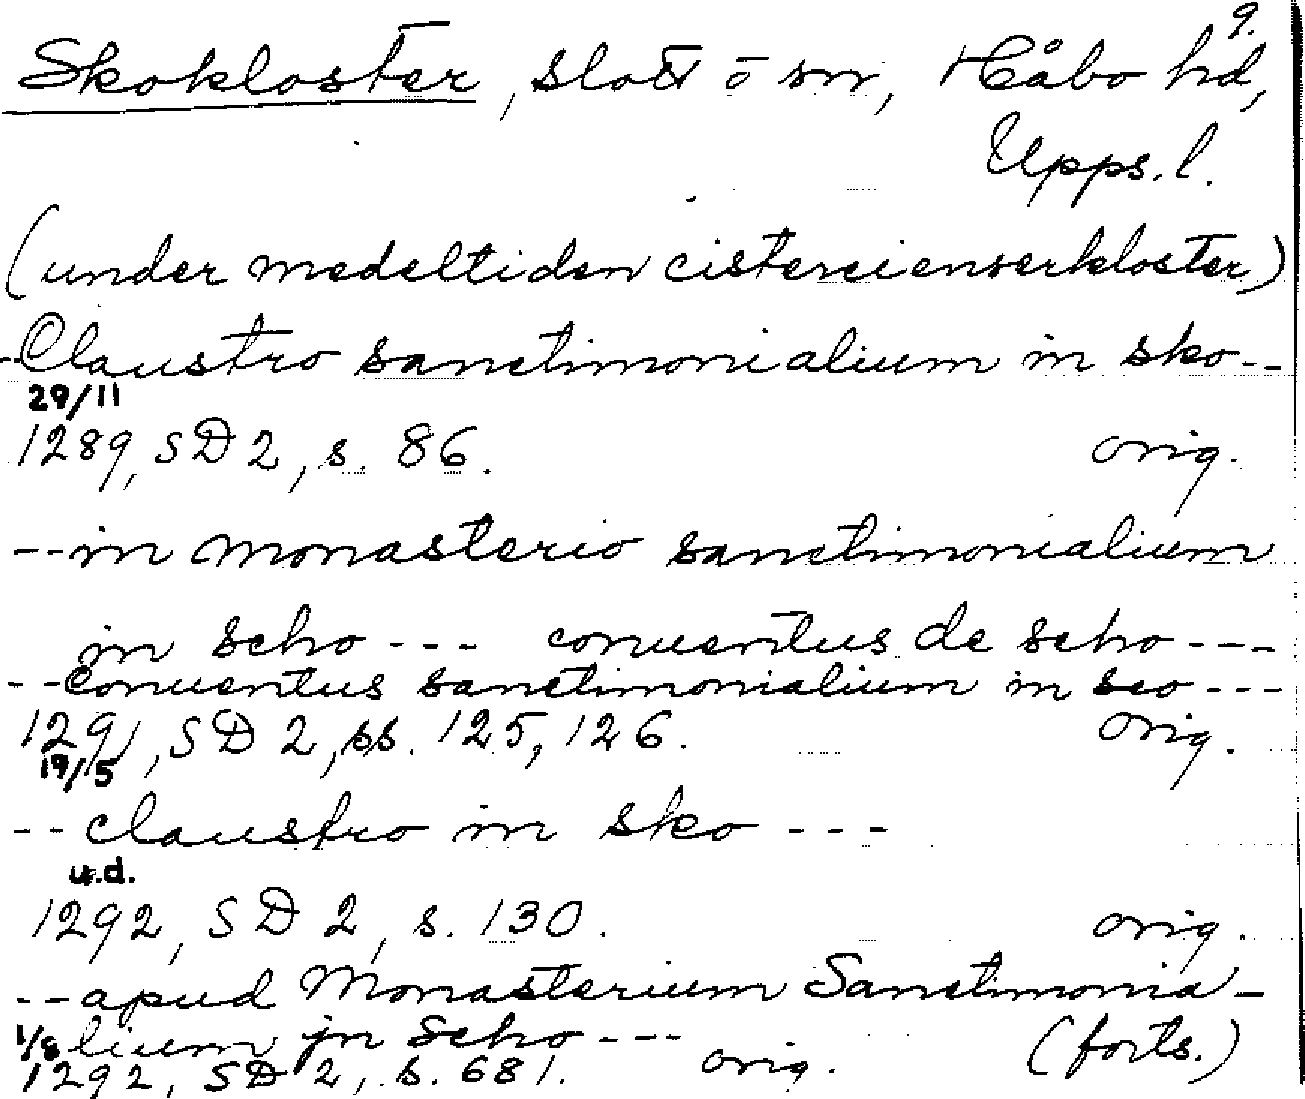 9.
Skokloster, slott o sn, Håbo hd,
Upps. l.
(under medeltiden cistercienserkloster)
--Claustro sanctimonialium in sko--
29/11
1289, SD 2, s. 86. orig.
--in monasterio sanctimonialium
in scho --- conuentus de scho ---
--Conuentus sanctimonialium in sco ---
1291, SD 2, ss. 125, 126. orig.
19/5
--claustro in sko ---
u.d.
1292, SD 2, s. 130. orig.
--apud Monasterium Sanctimonia-
1/8 lium in Scho --- (forts.)
1292, SD 2, s. 681. orig.